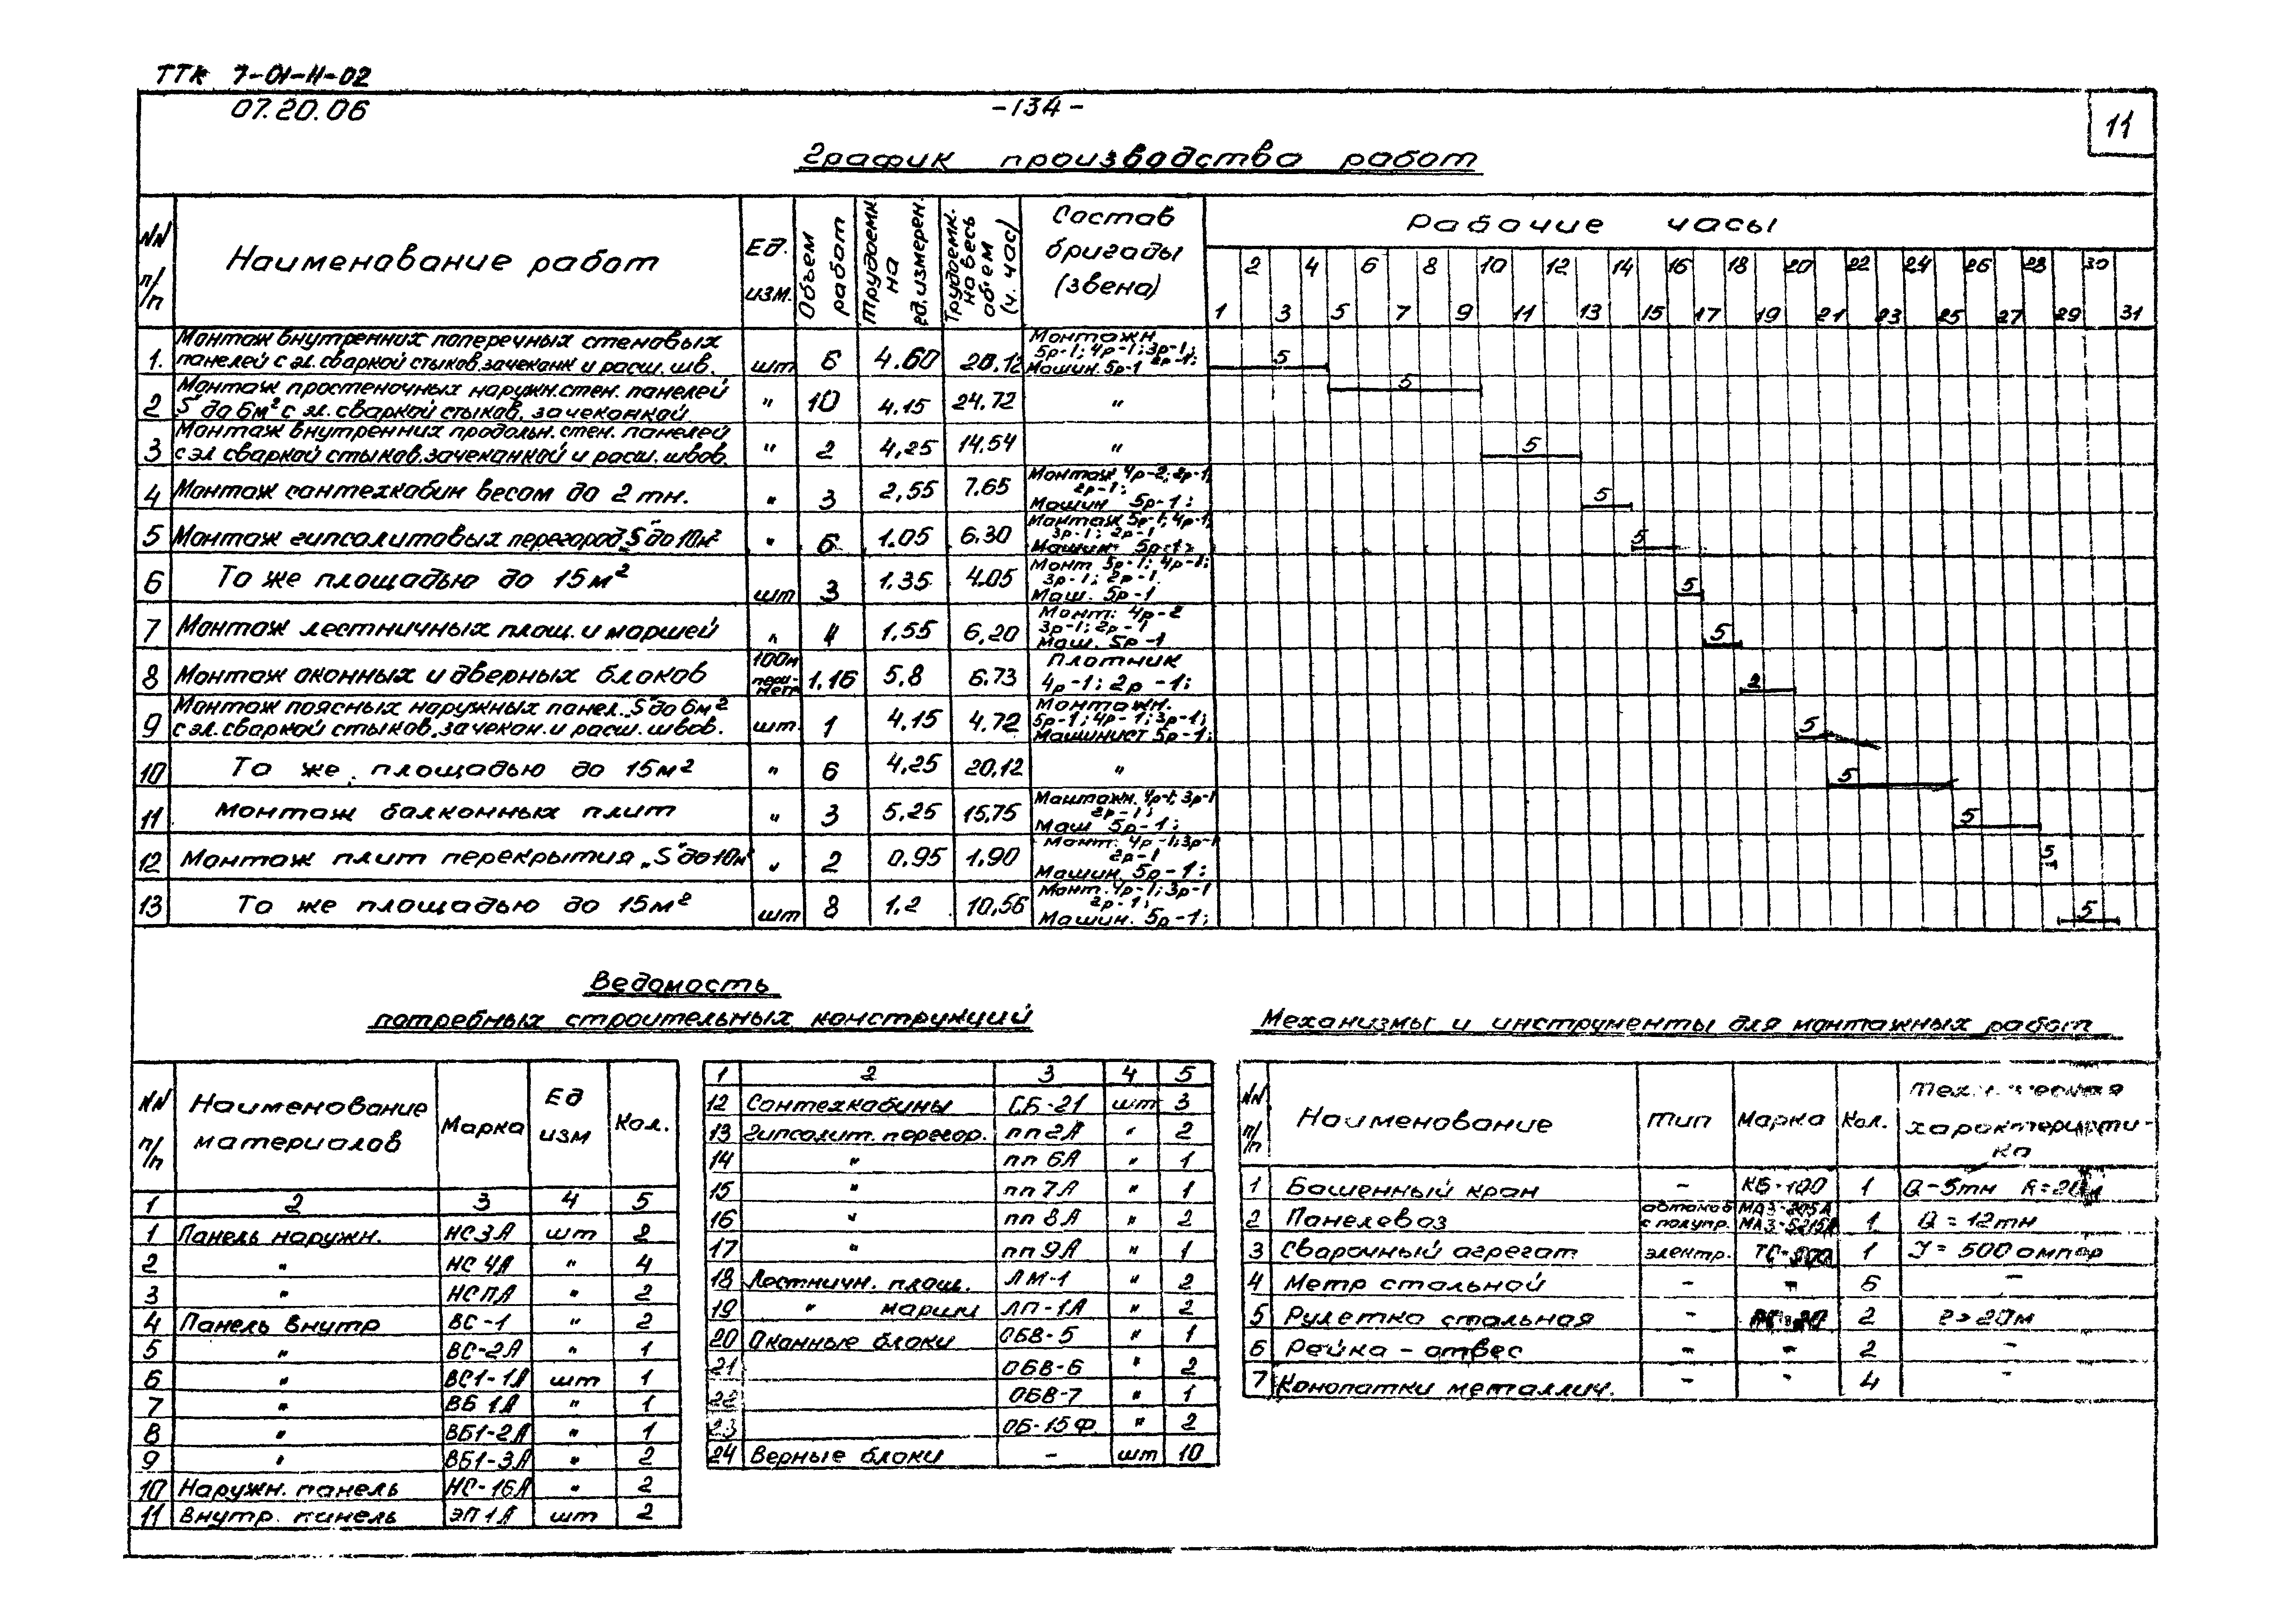 ТТК 7-01-II-02
07.20.06
-134-
11
График производства работ
NN п/п
Наименование работ
Ед. изм.
Объем работ
Трудоемк. на ед. измерен.
Трудоемк. на весь объем (ч. час)
Состав бригады (звена)
Рабочие часы
2 4 6 8 10 12 14 16 18 20 22 24 26 28 30
1 3 5 7 9 11 13 15 17 19 21 23 25 27 29 31
Монтаж внутренних поперечных стеновых
1. панелей с эл. сваркой стыков, зачеканк и расш. шв. шт 6 4.60 20.12 Монтажн. 5р-1; 4р-1; 3р-1; 2р-1; Машин. 5р-1 5
Монтаж простеночных наружн. стен. панелей
2 „S" до 6м² с эл. сваркой стыков, зачеканкой " 10 4.15 24.72 " 5
Монтаж внутренних продольн. стен. панелей
3 с эл сваркой стыков, зачеканкой и расш. швов. " 2 4,25 14.54 " 5
4 Монтаж сантехкабин весом до 2 тн. " 3 2,55 7.65 Монтаж 4р-2; 2р-1, 2р-1; Машин 5р-1; 5
5 Монтаж гипсолитовых перегород „S" до 10м² " 6 1.05 6.30 Монтаж 5р-1; 4р-1, 3р-1; 2р-1 Машин. 5р-1; 5
6 То же площадью до 15м² шт 3 1.35 4.05 Монт 5р-1; 4р-1; 3р-1; 2р-1 Маш. 5р-1 5
7 Монтаж лестничных площ. и маршей " 4 1.55 6,20 Монт: 4р-2 3р-1; 2р-1 Маш. 5р-1 5
8 Монтаж оконных и дверных блоков 100м периметр 1.16 5.8 6.73 Плотник 4р-1; 2р-1; 2
Монтаж поясных наружных панел. „S" до 6м²
9 с эл. сваркой стыков, зачекан. и расш. швов. шт. 1 4.15 4,72 Монтажн. 5р-1; 4р-1; 3р-1; Машинист 5р-1; 5
10 То же, площадью до 15м² " 6 4,25 20,12 " 5
11 Монтаж балконных плит " 3 5,25 15,75 Монтажн. 4р-1, 3р-1 2р-1; Маш 5р-1; 5
12 Монтаж плит перекрытия „S" до 10м² " 2 0.95 1.90 Монт. 4р-1; 3р-1 2р-1 Машин. 5р-1: 5
13 То же площадью до 15м² шт 8 1.2 10,56 Монт. 4р-1; 3р-1 2р-1; Машин. 5р-1; 5
Ведомость
потребных строительных конструкций
NN п/п Наименование материалов Марка Ед изм Кол.
1 2 3 4 5
1 Панель наружн. НС3А шт 2
2 " НС 4А " 4
3 " НСПА " 2
4 Панель внутр ВС-1 " 2
5 " ВС-2А " 1
6 " ВС1-1А шт 1
7 " ВБ 1А " 1
8 " ВБ1-2А " 1
9 " ВБ1-3А " 2
10 Наружн. панель НС-16А " 2
11 Внутр. панель ЭП 1А шт 2
1 2 3 4 5
12 Сантехкабины СБ-21 шт 3
13 Гипсолит. перегор. пп2А " 2
14 " пп 6А " 1
15 " пп 7А " 1
16 " пп 8А " 2
17 " пп 9А " 1
18 Лестничн. площ. ЛМ-1 " 2
19 " марши ЛП-1А " 2
20 Оконные блоки ОБВ-5 " 1
21 ОБВ-6 " 2
22 ОБВ-7 " 1
23 ОБ-15 Ф. " 2
24 Верные блоки - шт 10
Механизмы и инструменты для монтажных работ
NN п/п Наименование Тип Марка Кол. Техническая характеристика
1 Башенный кран - КБ-100 1 Q-5тн
2 Панелевоз автомоб с полупр. МАЗ-205А МАЗ-5215А 1 Q = 12тн
3 Сварочный агрегат электр. ТС-500 1 J = 500 ампер
4 Метр стальной - - 5 -
5 Рулетка стальная - 2 20м
6 Рейка - отвес - - 2 -
7 Конопатки металлич. - - 4 -